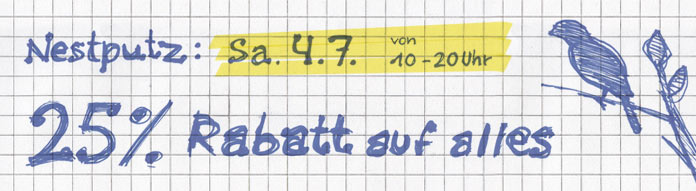 Nestputz: Sa. 4.7. von 10-20 Uhr
25% Rabatt auf alles